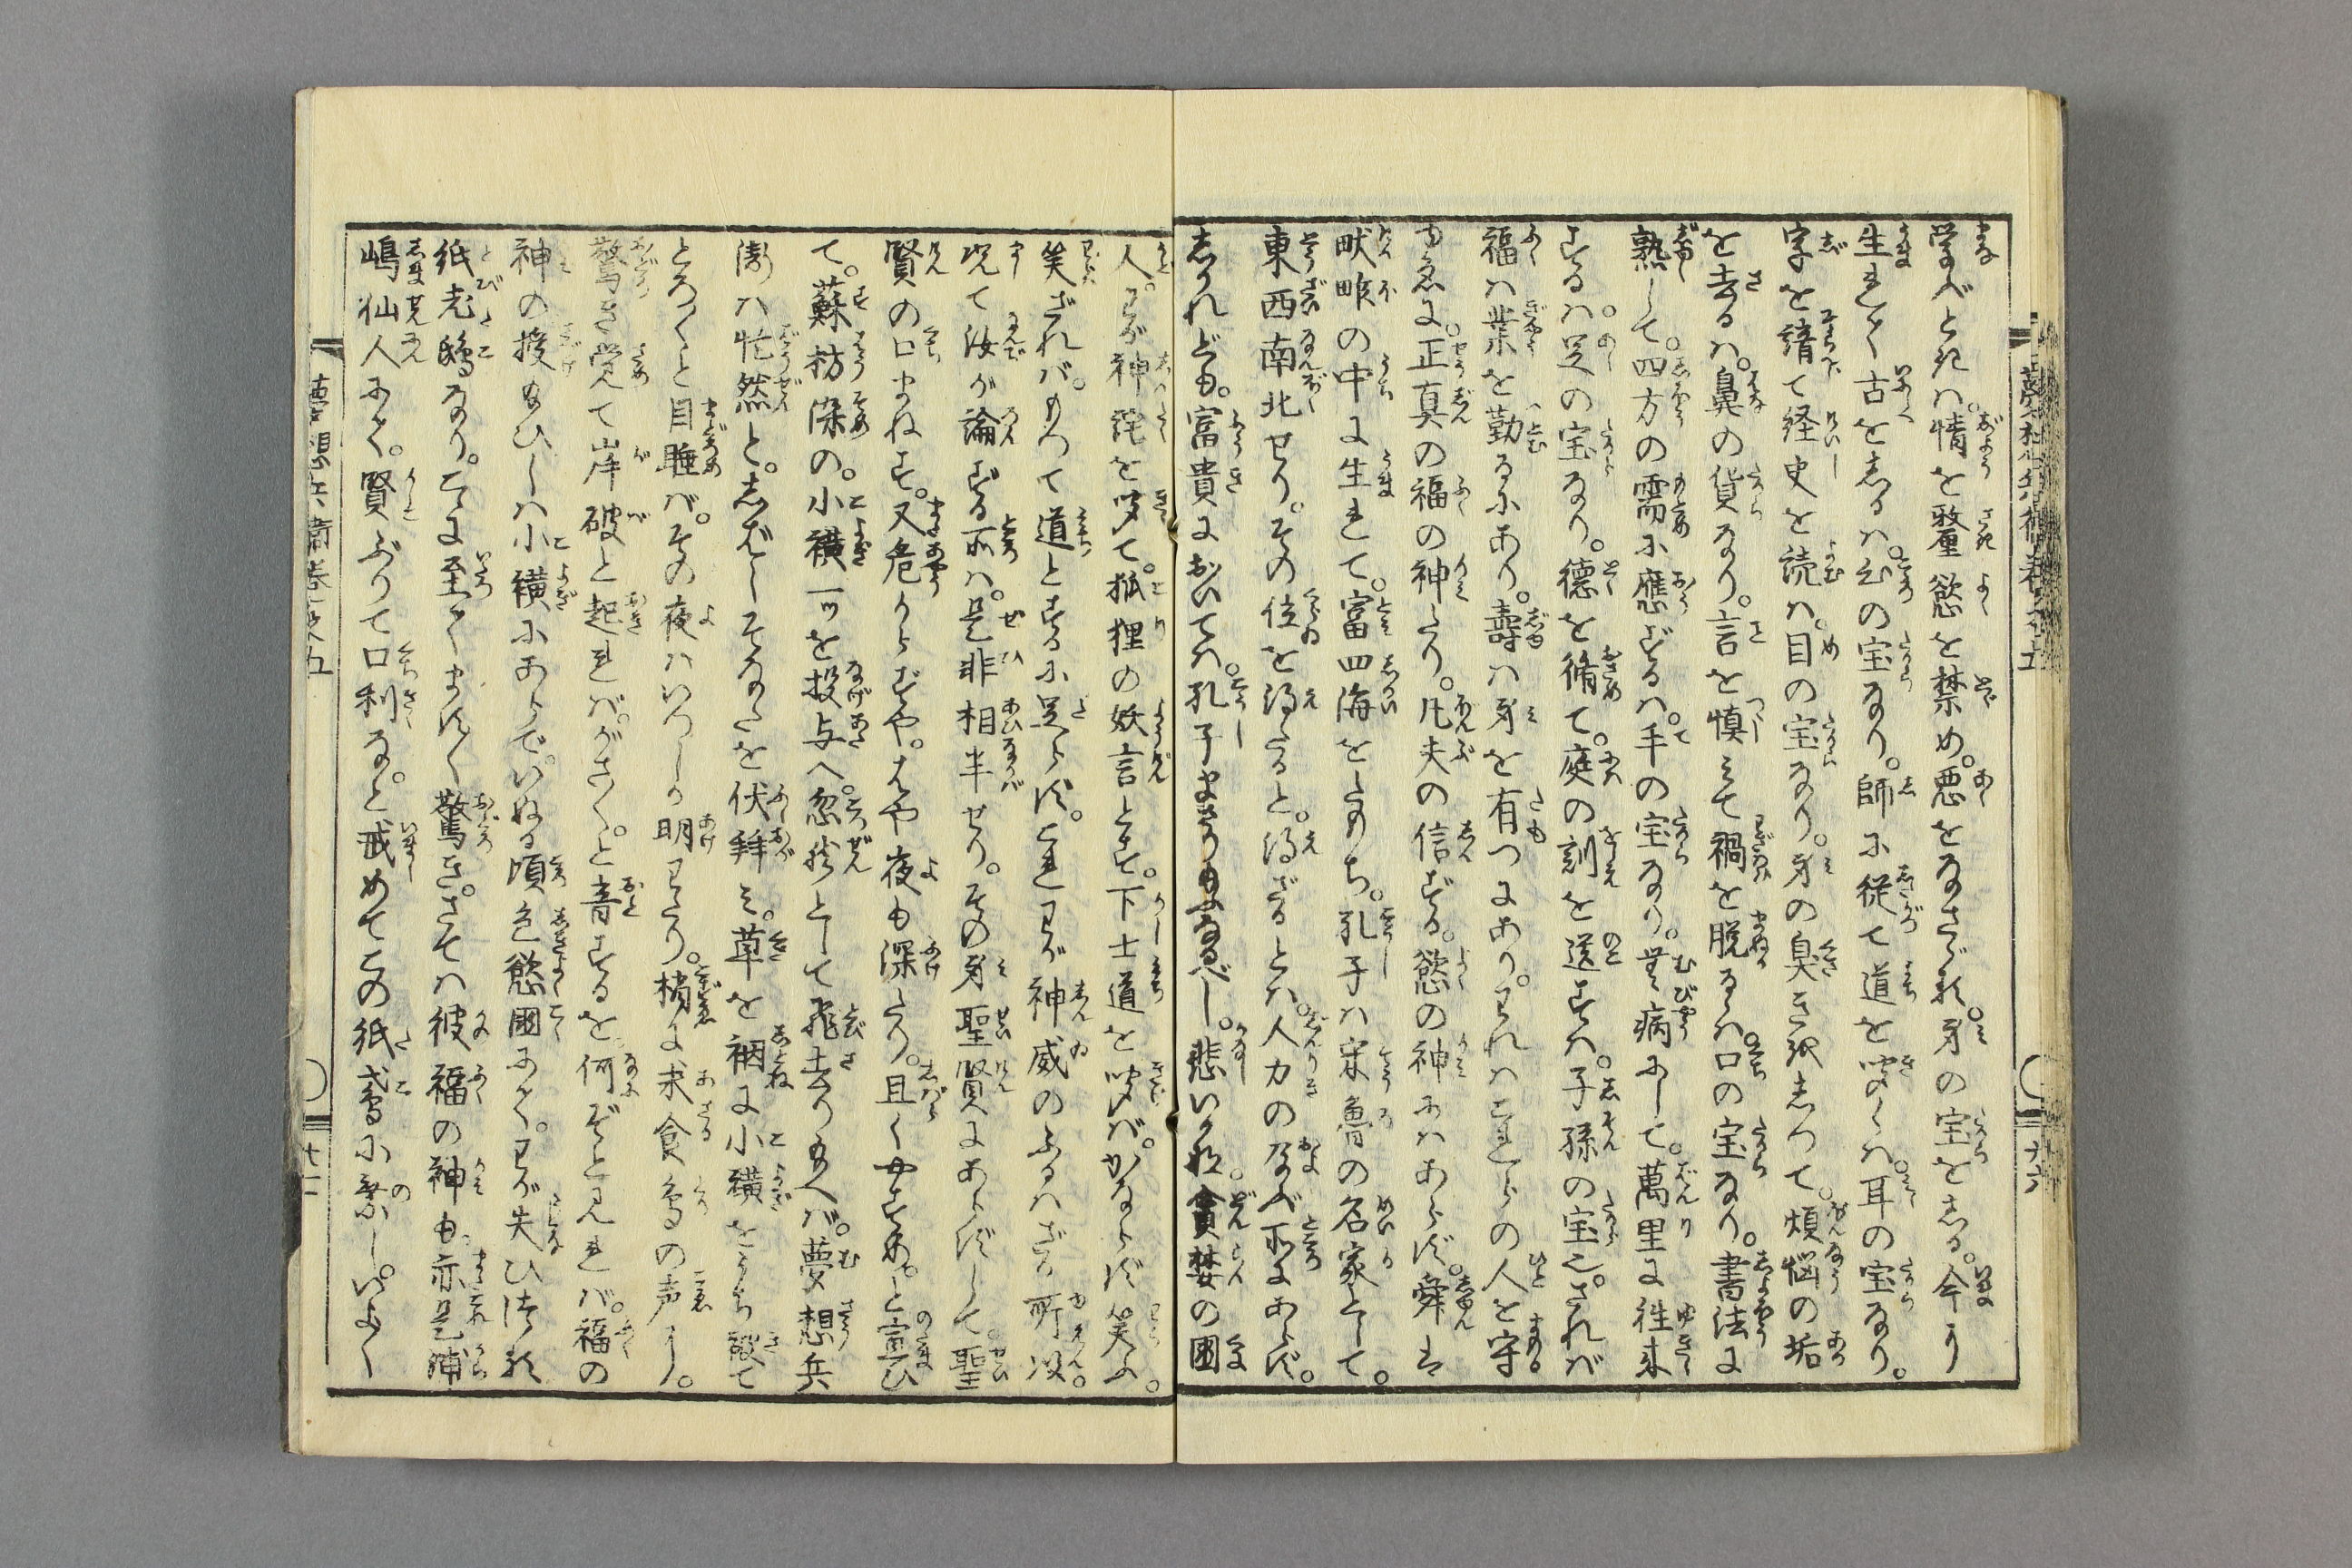 学べとれば。情を墾慾を禁め。悪をなさゞれ。身の宝をしる。今より
生れて古をしるは。心の宝なり。師に従て道を聞くは。耳の宝なり。
字を請て経史を読は。目の宝なり。身の臭き紙しつて。煩悩の垢
を去るは。鼻の貨なり。言を慎みて禍を脱るゝは口の宝なり。書法に
熟して。四方の需に應ずるは。手の宝なり。無病にして。萬里に往来
するは。足の宝なり。徳を脩て。庭の訓を送すは。子孫の宝也。されば
福は業を勤るにあり。壽は身を有つにあり。われはこれらの人を守
ゆゑに。正真の福の神たり。凡夫の信ずる。慾の神にはあらず。舜は
畎畝の中に生れて。富四海をたもち。孔子は宋魯の名家として。
東西南北せり。その位を得たると。得ざるとは。人力のなす所にあらず。
しかれども。富貴においては。孔子まさりもなるべし。悲いかな。貪婪の国
人。わが神詫を聞て。狐狸の妖言とす。下士道を聞ば。かならず笑ふ。
笑ざれば。もつて道とするに足らず。これわが神威のふるはざる所以。
況て汝が論ずる所は。是非相半せり。その身聖賢にあらずして。聖
賢の口まねす。又危からずや。はや夜も深たり。且くやすめ。と宣ひ
て。蘇枋染の。小襖一ツを投与へ。忽然として飛去り給へば。夢想兵
衛は忙然と。しばしそなたを伏拝み。草を裀に小襖をうち被て
とろ〳〵と目睡ば。その夜はいつしか明わたり。梢に求食鳥の声に。
驚き覚て岸破と起れば。がさ〳〵。と音するを。何ぞと見れば。福の
神の授給ひしは小襖にあらで。いぬる頃色慾国にて。わが失ひつる
紙老鴟なり。こゝに至てます〳〵驚き。さては彼福の神も亦是浦
嶋仙人にて。賢ぶりて口利な。と戒めてこの紙鳶に乗し。いよ〳〵
夢想兵衛巻之五